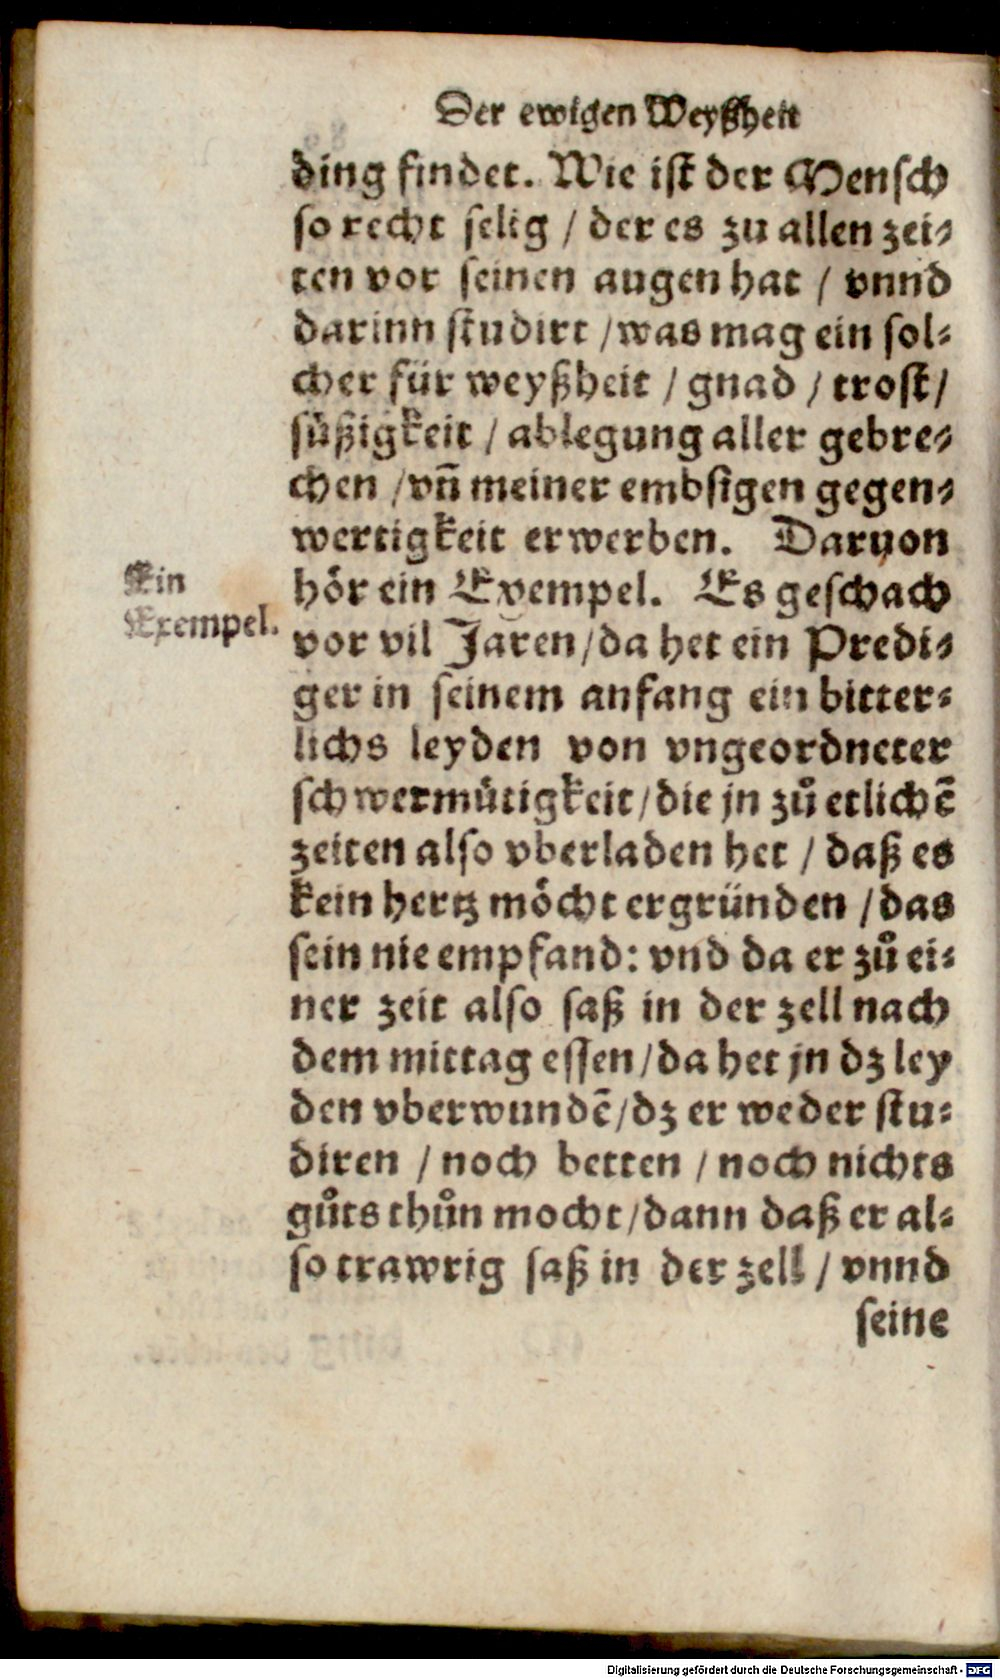 Der ewigen Weyßheit
ding findet. Wie ist der Mensch
so recht selig / der es zu allen zei⸗
ten vor seinen augen hat / vnnd
darinn studirt / was mag ein sol⸗
cher für weyßheit / gnad / trost /
süßigkeit / ablegung aller gebre⸗
chen / vñ meiner embsigen gegen⸗
wertigkeit erwerben. Daruon
hör ein Exempel. Es geschach
Ein
Exempel.
vor vil Jaren / da het ein Predi⸗
ger in seinem anfang ein bitter⸗
lichs leyden von vngeordneter
schwermütigkeit / die jn zů etlichẽ
zeiten also vberladen het / daß es
kein hertz möcht ergründen / das
sein nie empfand: vnd da er zů ei⸗
ner zeit also saß in der zell nach
dem mittag essen / da het jn dz ley
den vberwundẽ / dz er weder stu⸗
diren / noch betten / noch nichts
gůts thůn mocht / dann daß er al⸗
so trawrig saß in der zell / vnnd
seine
Digitalisierung gefördert durch die Deutsche Forschungsgemeinschaft - DFG